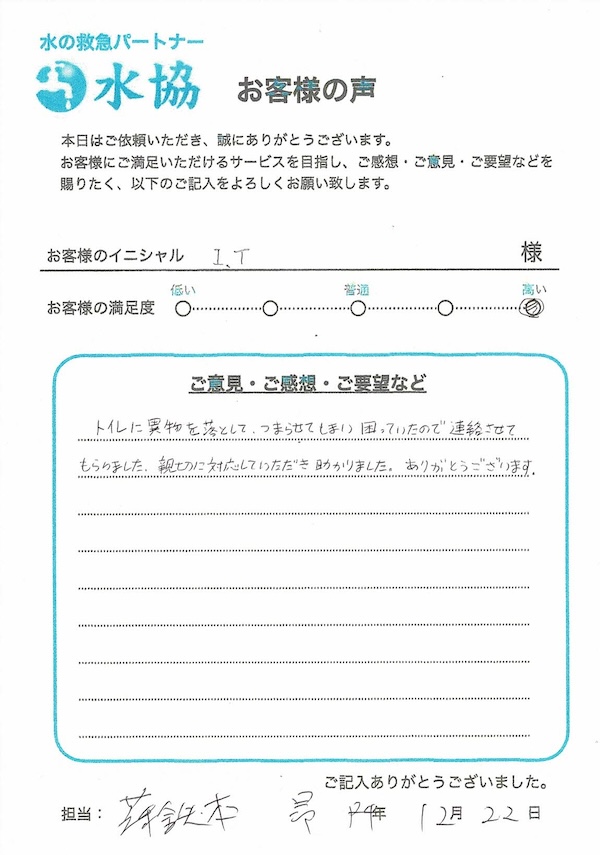 水の救急パートナー
水協
お客様の声
本日はご依頼いただき、誠にありがとうございます。
お客様にご満足いただけるサービスを目指し、ご感想・ご意見・ご要望などを
賜りたく、以下のご記入をよろしくお願い致します。
お客様のイニシャル I.T 様
低い 普通 高い
お客様の満足度
ご意見・ご感想・ご要望など
トイレに異物を落として、つまらせてしまい困っていたので連絡させて
もらいました。親切に対応していただき助かりました。ありがとうございます。
ご記入ありがとうございました。
担当: 本 昴 年 12月 22日